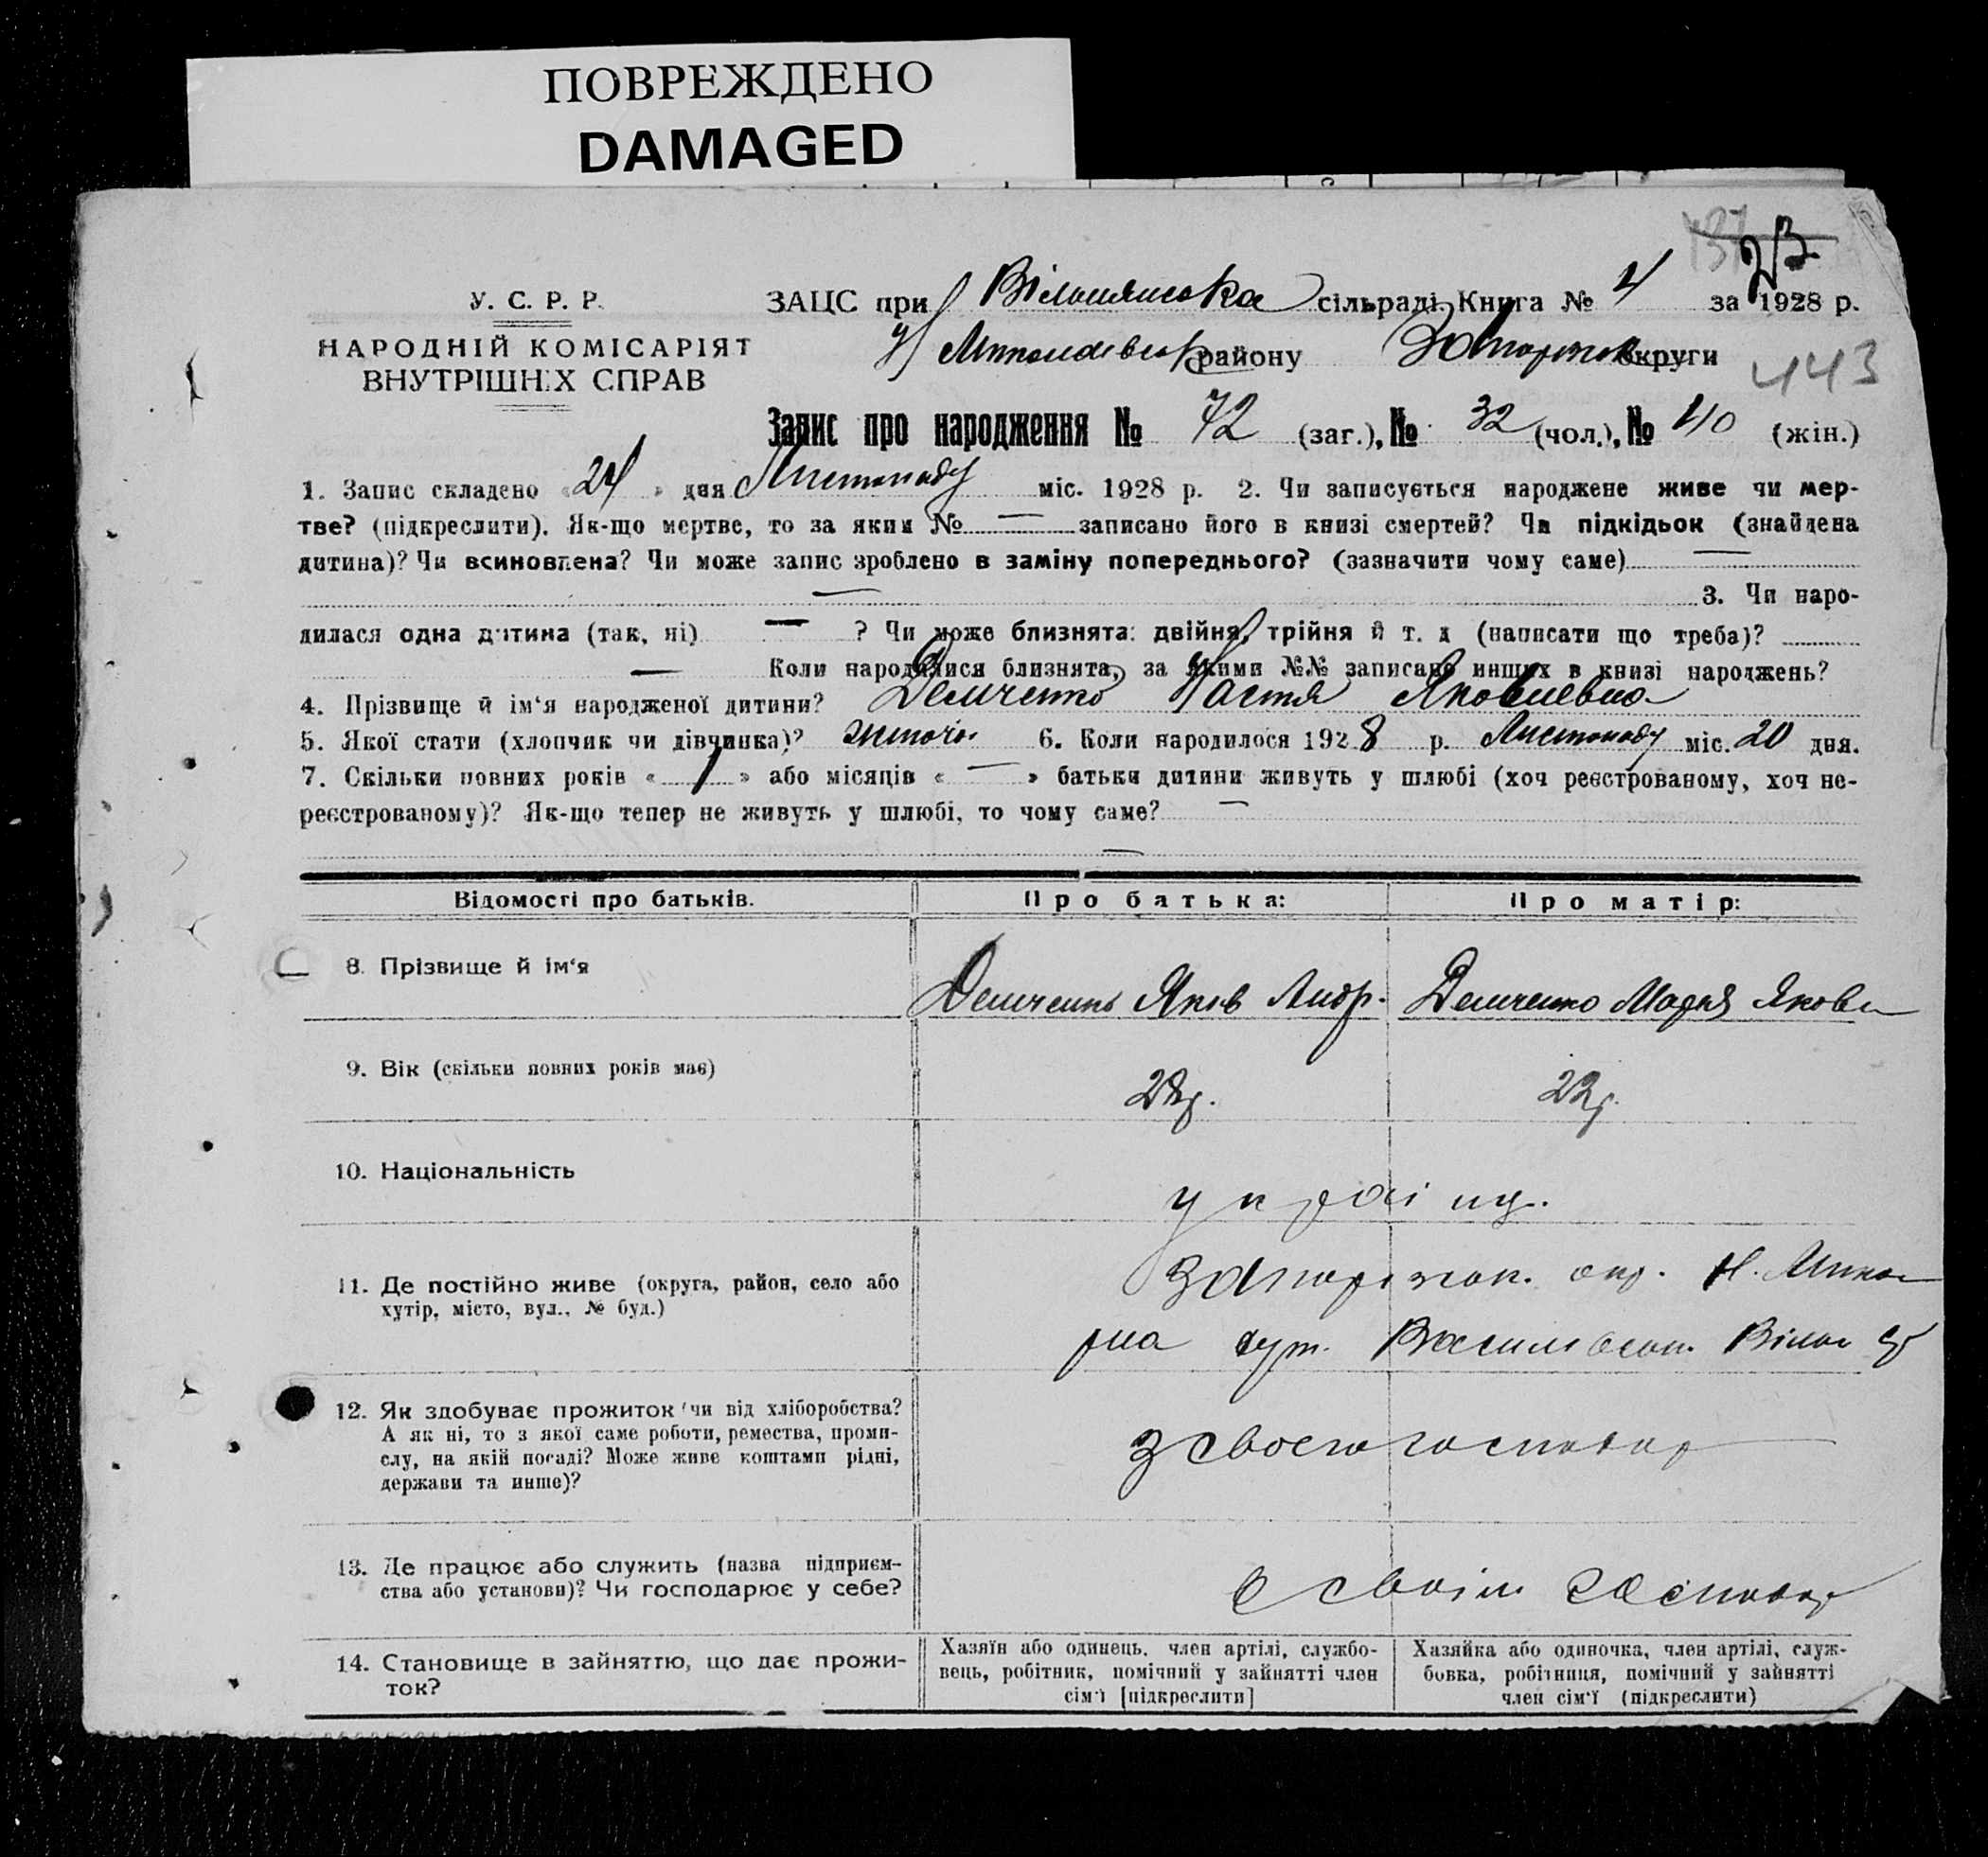 ПОВРЕЖДЕНО
DAMAGED
23
У. С. Р. Р.
НАРОДНІЙ КОМІСАРІЯТ
ВНУТРІШНІХ СПРАВ
ЗАЦС при Вільнянська сільраді. Книга № 4 за 1928 р.
району округи
443
Запис про народження № 72 (заг.), № 32 (чол.), № 40 (жін.)
1. Запис складено «24» дня Листопаду міс. 1928 р. 2. Чи записується народжене живе чи мер-
тве? (підкреслити). Як-що мертве, то за яким № — записано його в книзі смертей? Чи підкідьок (знайдена
дитина)? Чи всиновлена? Чи може запис зроблено в заміну попереднього? (зазначити чому саме) —
— 3. Чи наро-
дилася одна дитина (так, ні) — ? Чи може близнята: двійня, трійня й т. д (написати що треба)?
— Коли народилися близнята, за якими №№ записано инших в книзі народжень?
4. Прізвище й ім‘я народженої дитини? Демченко Настя Яковлевна
5. Якої статі (хлопчик чи дівчинка)? жіноча 6. Коли народилося 1928 р. Листопаду міс. 20 дня.
7. Скільки повних років « 1 » або місяців « — » батьки дитини живуть у шлюбі (хоч реєстрованому, хоч не-
реєстрованому)? Як-що тепер не живуть у шлюбі, то чому саме? —
—
Відомості про батьків. Про батька: Про матір:
8. Прізвище й ім‘я Демченко Яков Андр. Демченко Мария Яковл
9. Вік (скільки повних років має) 22р.
10. Національність україн.
11. Де постійно живе (округа, район, село або
хутір, місто, вул., № буд.)
Запоріжск. окр. Н. Микол
рна хут.
12. Як здобуває прожиток чи від хліборобства?
А як ні, то з якої саме роботи, ремества, проми-
слу, на якій посаді? Може живе коштами рідні,
держави та инше)?
з своего господар
13. Де працює або служить (назва підприєм-
ства або установи)? Чи господарює у себе?
в своїм господар
14. Становище в зайняттю, що дає прожи-
ток?
Хазяїн або одинець, член артілі, службо-
вець, робітник, помічний у зайнятті член
сім‘ї [підкреслити]
Хазяйка або одиночка, член артілі, служ-
бовка, робітниця, помічний у зайнятті
член сім‘ї (підкреслити)